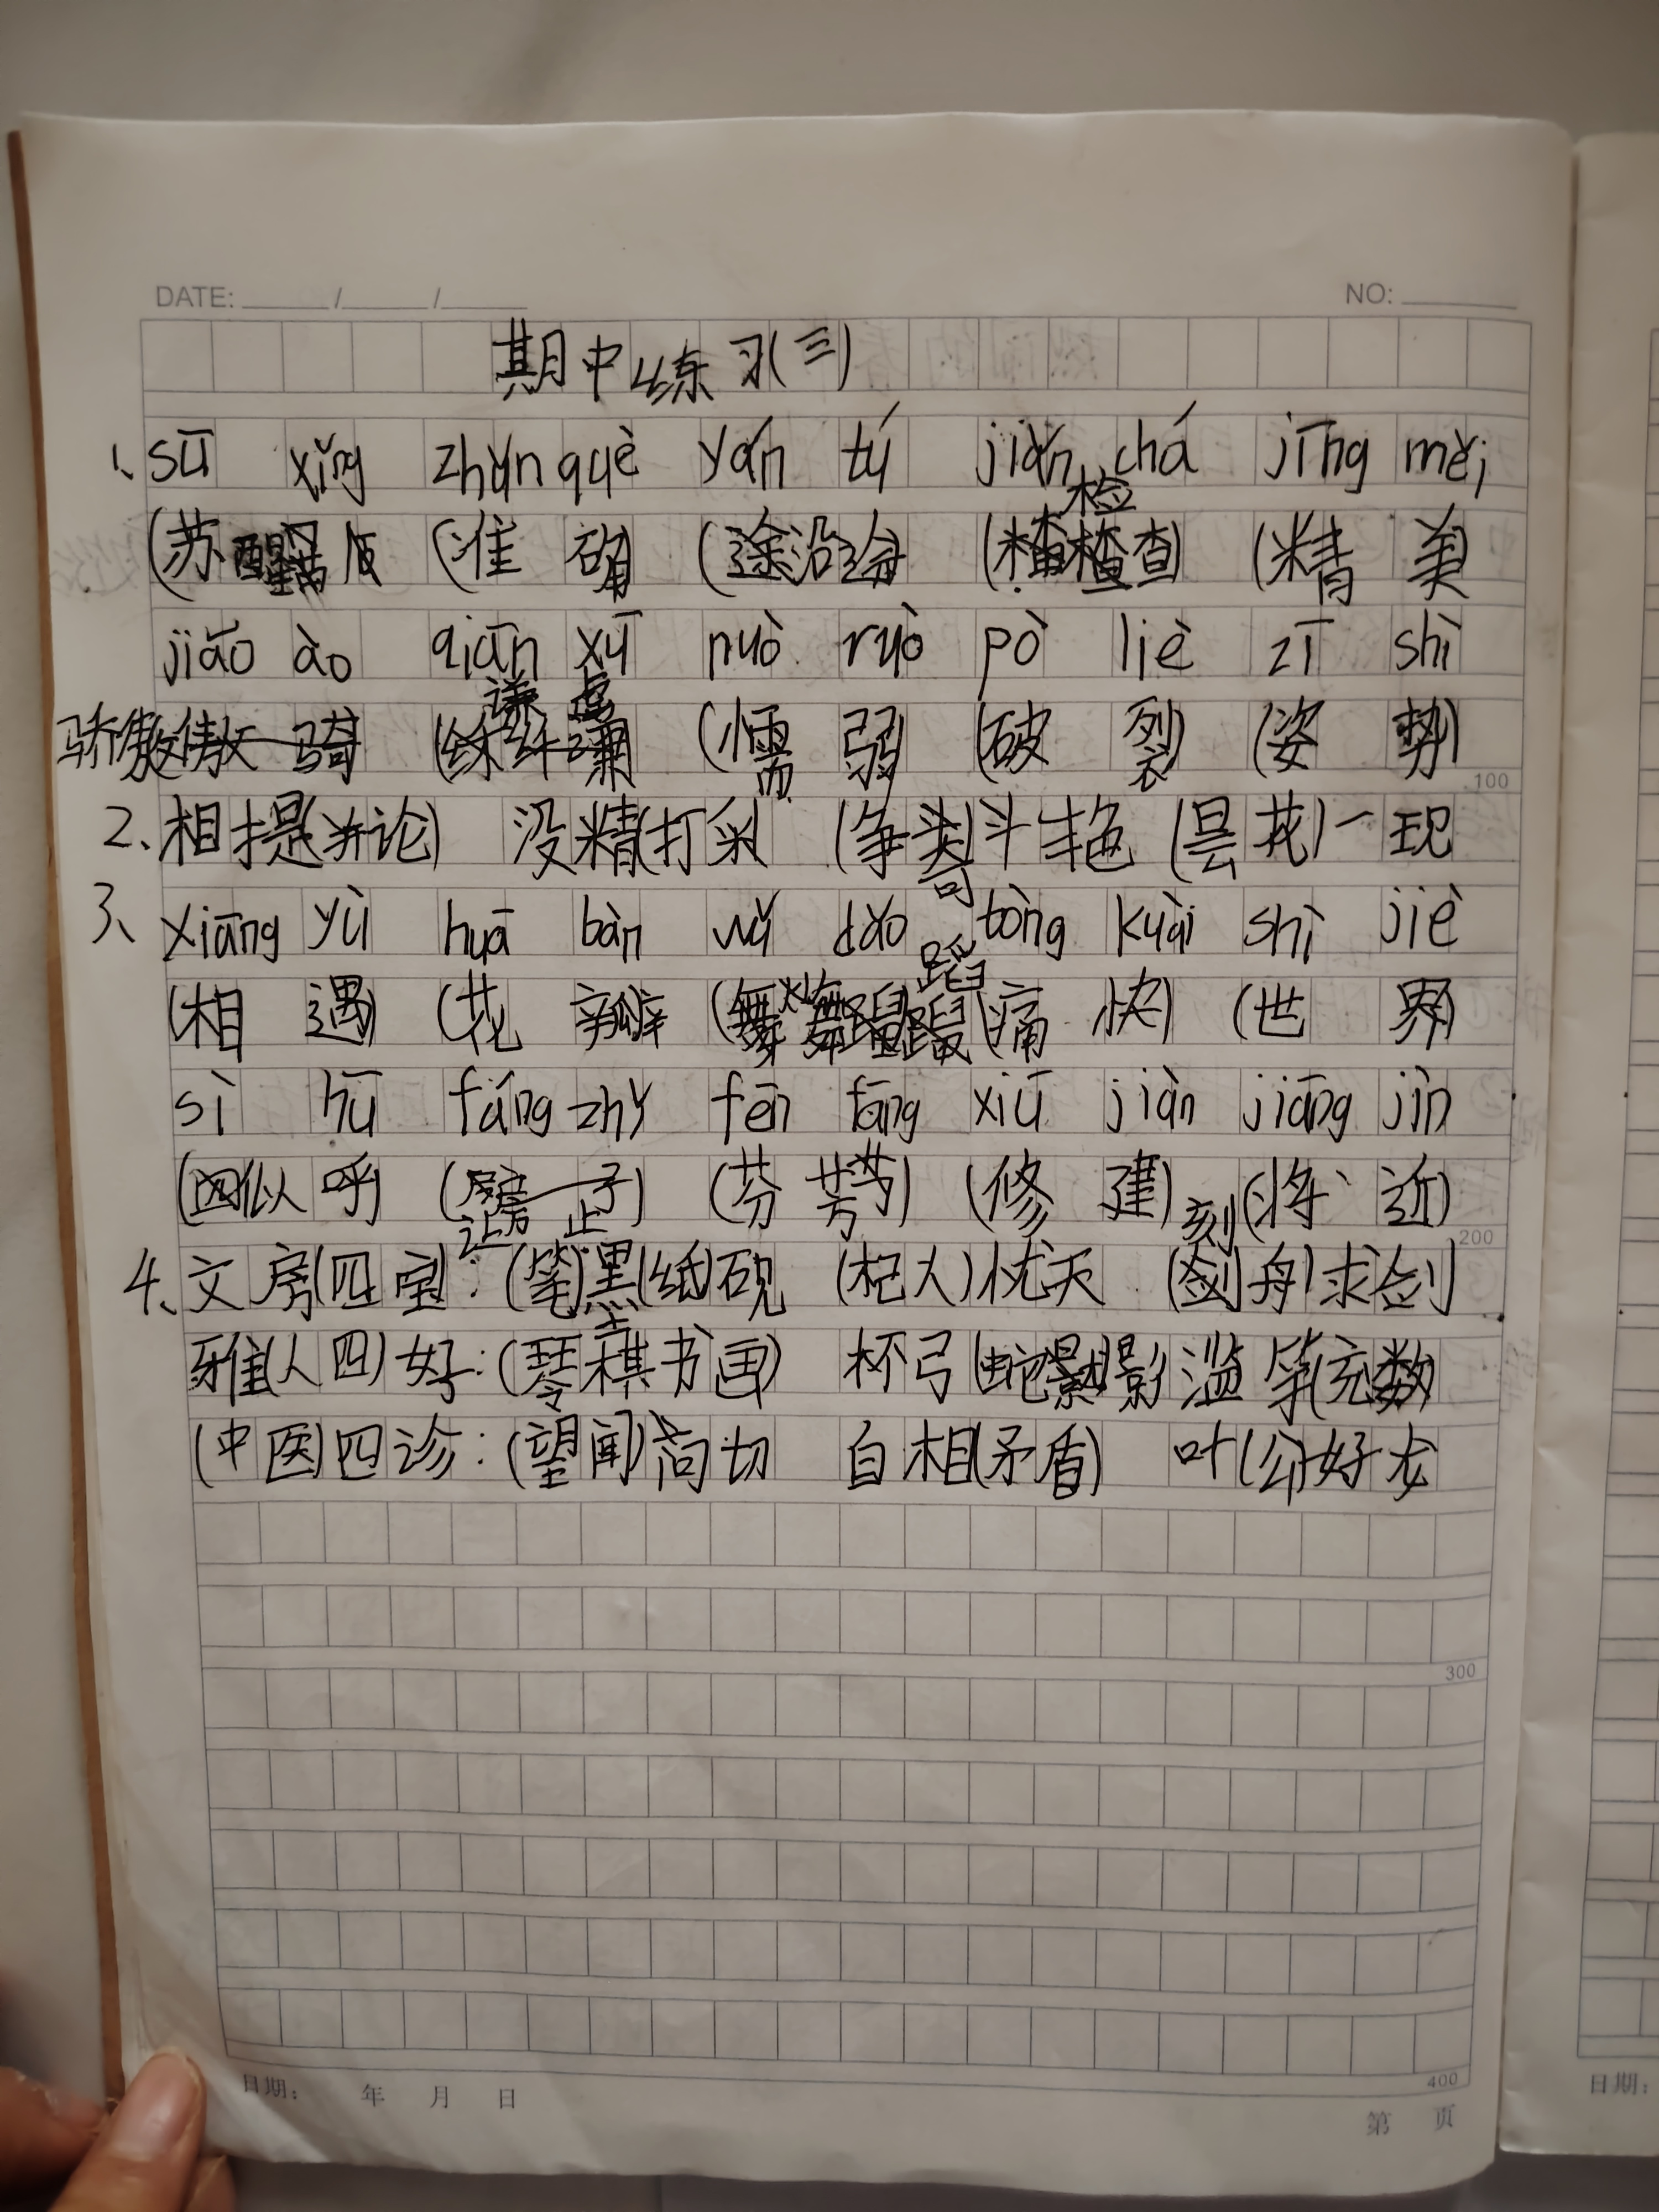 DATE: ____/____/____ NO: ____
期中练习(三)
1、sū xǐng zhǔn què yán tú jiǎn chá jīng měi
(苏醒 (准 确 (沿途 (检查) (精 美
jiāo ào qiān xū nuò ruò pò liè zī shì
骄傲 (谦 虚 (懦 弱) (破 裂) (姿 势)
100
2、相提(并论) 没精(打采 (争奇)斗艳 (昙花)一现
3、xiāng yù huā bàn wǔ dǎo tòng kuài shì jiè
(相 遇) (花 瓣 (舞蹈 (痛 快) (世 界
sì hū fáng zhǐ fēn fāng xiū jiàn jiāng jìn
(似 呼) (防 止) (芬 芳) (修 建) (将 近)
200
4、文房(四宝):(笔)墨(纸)砚 (杞人)忧天 (刻舟)求剑
雅(人四)好:(琴棋书画) 杯弓(蛇影 滥竽(充数
(中医)四诊:(望闻)问切 自相(矛盾) 叶(公)好龙
300
400
日期: 年 月 日
第 页
日期: